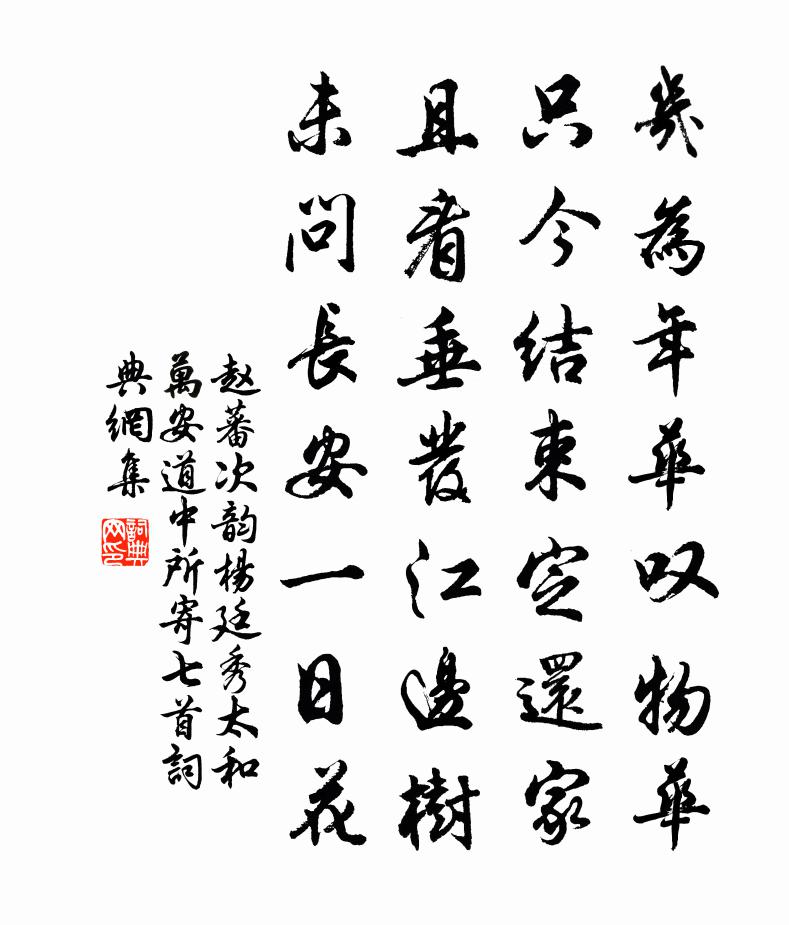 幾為年華叹物華
只今結束定還家
且看垂發江邊樹
未問長安一日花
赵蕃次韵楊廷秀太和
萬安道中所寄七首詞
典網集
詞典网印